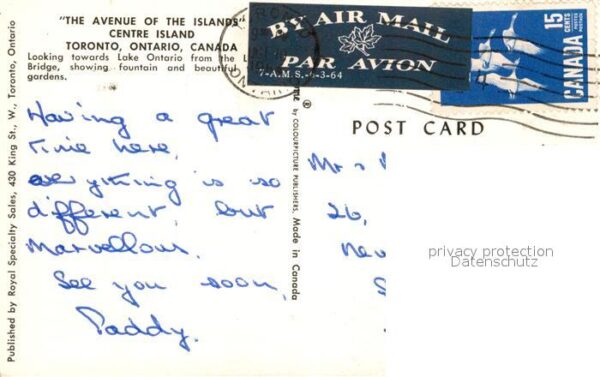 "THE AVENUE OF THE ISLANDS"
CENTRE ISLAND
TORONTO, ONTARIO, CANADA
Looking towards Lake Ontario from the
Bridge, showing fountain and beautiful
gardens.
BY AIR MAIL
PAR AVION
7-A.M.S.-6-3-64
15
CENTS
POSTES POSTAGE
CANADA
Published by Royal Specialty Sales, 430 King St., W., Toronto, Ontario
by COLOURPICTURE PUBLISHERS, Made in Canada
®
POST CARD
Having a great
time here,
everything is so
different, but
marvellous.
See you soon,
Paddy.
Mr &
26,
New
S
privacy protection
Datenschutz